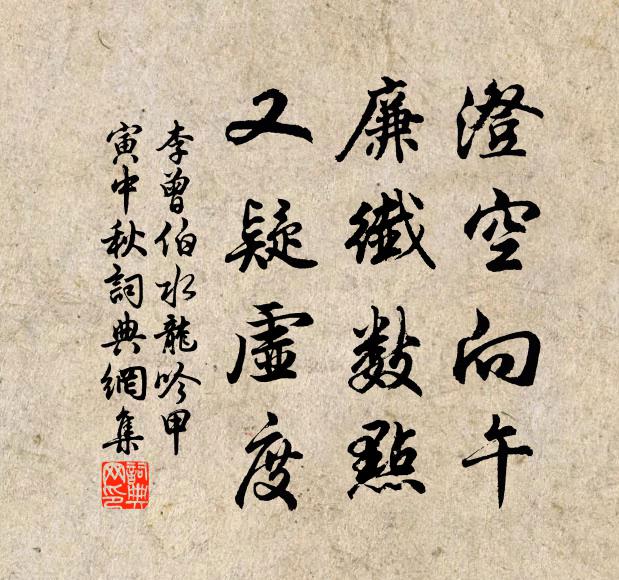 澄空向午
廉纖數點
又疑虛度
李曾伯水龍吟甲
寅中秋詞典網集
詞典网印